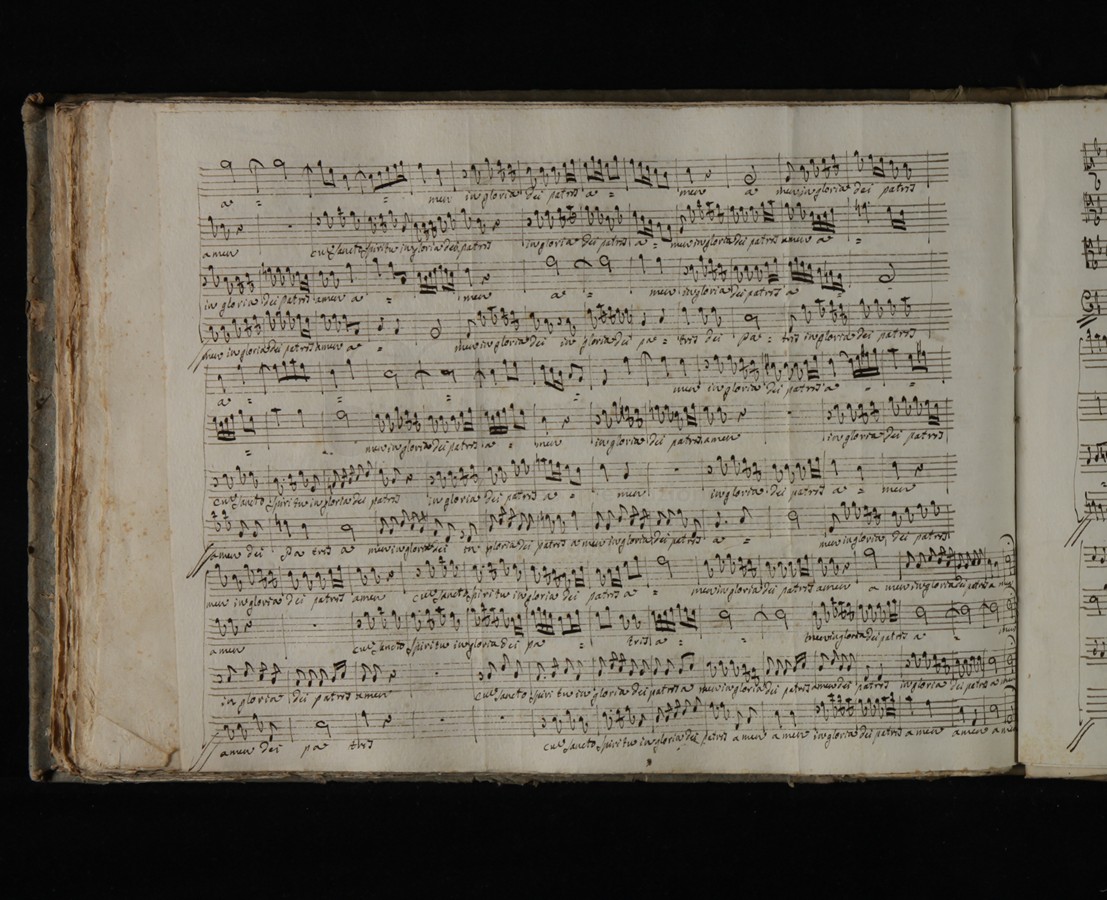 a = = men in gloria dei patris a = men a men in gloria dei patris
amen cu Sancto Spiritu in gloria dei patris in gloria dei patris a = men in gloria dei patris amen a =
in gloria dei patris amen a = men a = men in gloria dei patris a
men in gloria dei patris amen a = men in gloria dei in gloria dei pa = tris dei pa = tris in gloria dei patris
a = = = = men in gloria dei patris a = =
= men in gloria dei patris a = men in gloria dei patris amen in gloria dei patris
cu Sancto Spiritu in gloria dei patris in gloria dei patris a = men in gloria dei patris a = men
amen dei pa tris a men in gloria dei in gloria dei patris amen in gloria dei patris a = men in gloria dei patris
men in gloria dei patris amen cu Sancto Spiritu in gloria dei patris a = men in gloria dei patris amen a men in gloria dei patris a
amen cu Sancto Spiritu in gloria dei pa = tris a = = men in gloria dei patris a men
in gloria dei patris amen cu Sancto Spiritu in gloria dei patris a men in gloria dei patris amen dei patris in gloria dei patris a
amen dei pa tris cu Sancto Spiritu in gloria dei patris amen amen in gloria dei patris amen amen